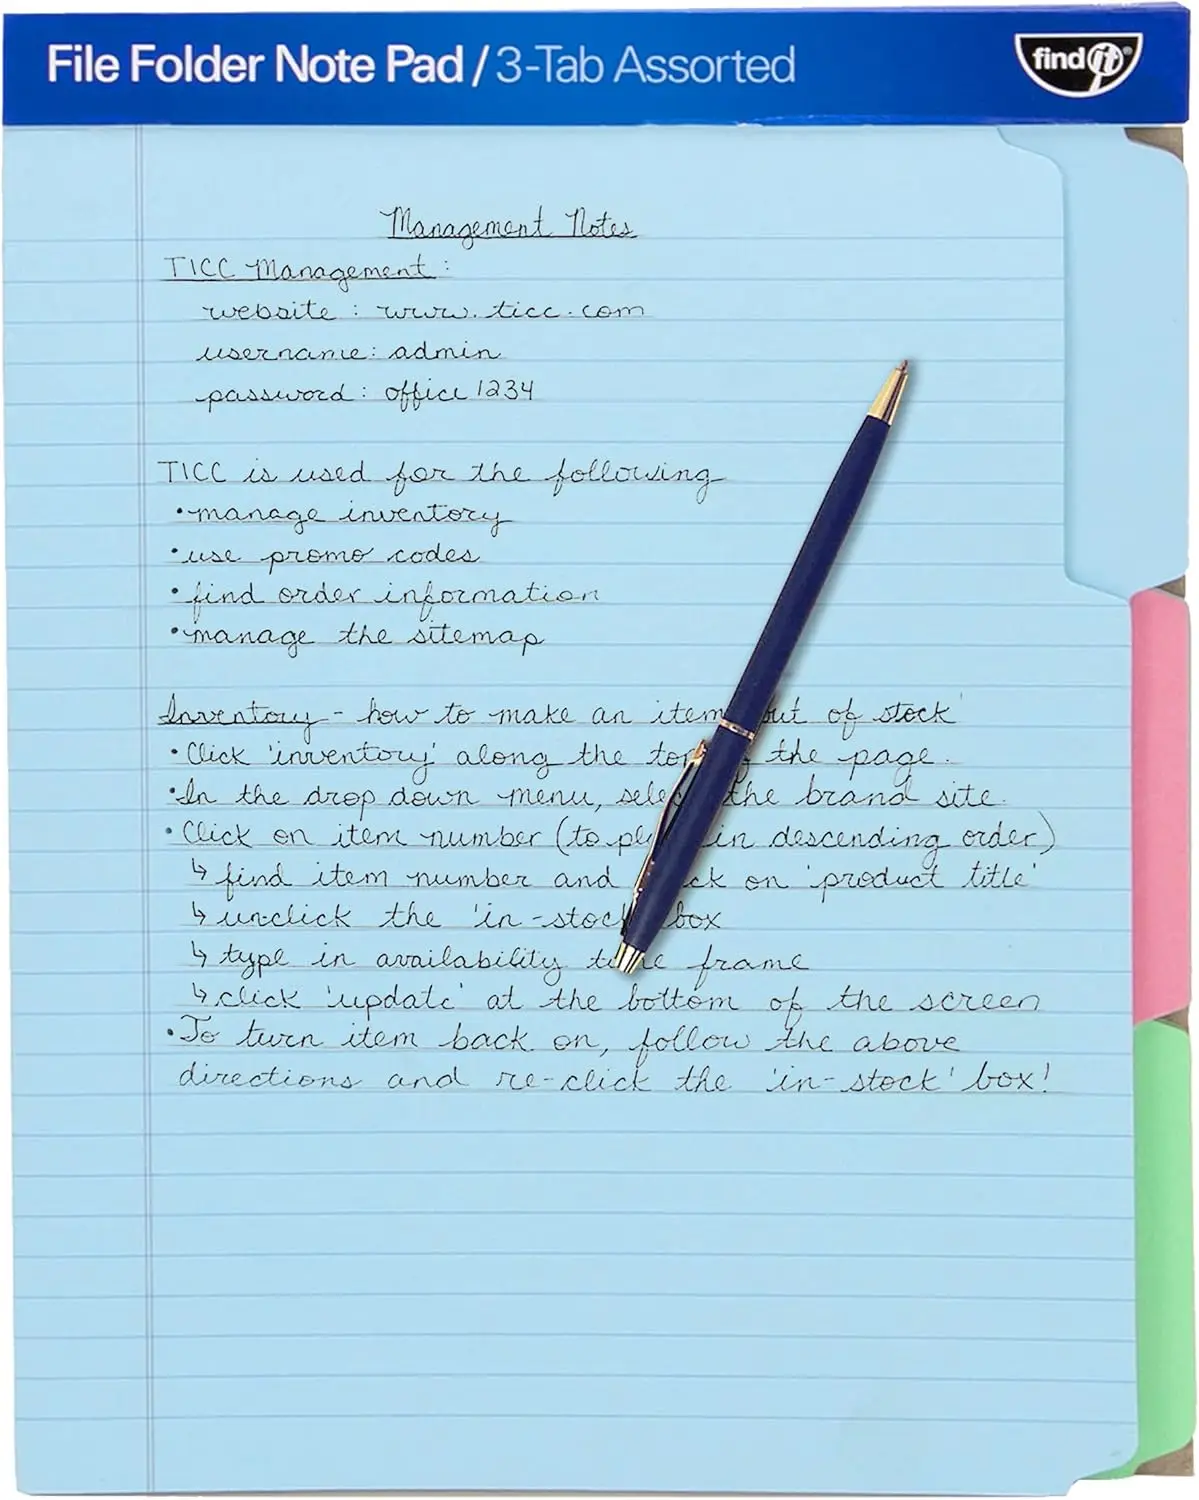 File Folder Note Pad / 3-Tab Assorted
find it®
Management Notes
TICC Management:
website: www.ticc.com
username: admin
password: office1234
TICC is used for the following
•manage inventory
•use promo codes
•find order information
•manage the sitemap
Inventory - how to make an item out of stock
•Click 'inventory' along the top the page.
•In the drop down menu, select the brand site.
•Click on item number (to in descending order)
↳find item number and click on 'product title'
↳unclick the 'in-stock' box
↳type in availability time frame
↳click 'update' at the bottom of the screen
•To turn item back on, follow the above
directions and re-click the 'in-stock' box!